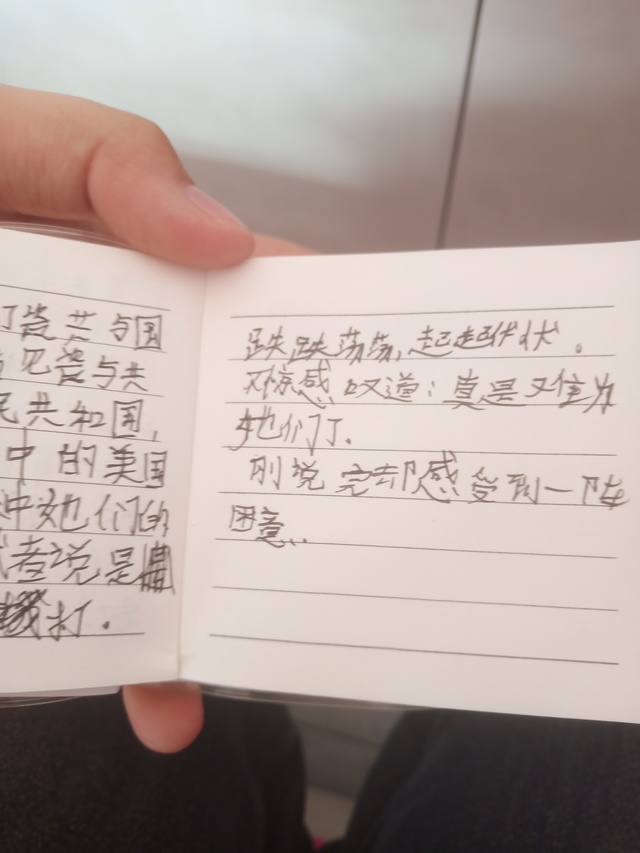 瓷共与国
见瓷与共
民共和国,
中的美国
中她们的
者说是
打.
跌跌荡荡,起起伏伏。
不惊感叹道:真是又佳为
她们了.
刚说完却感受到一阵
困意..